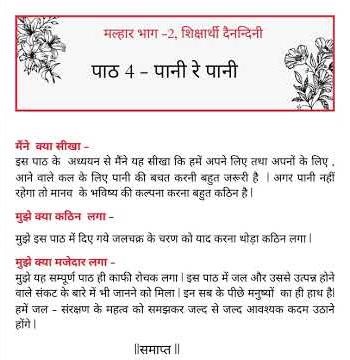 मल्हार भाग -2, शिक्षार्थी दैनन्दिनी
पाठ 4 - पानी रे पानी
मैंने क्या सीखा -
इस पाठ के अध्ययन से मैंने यह सीखा कि हमें अपने लिए तथा अपनों के लिए ,
आने वाले कल के लिए पानी की बचत करनी बहुत जरूरी है | अगर पानी नहीं
रहेगा तो मानव के भविष्य की कल्पना करना बहुत कठिन है |
मुझे क्या कठिन लगा -
मुझे इस पाठ में दिए गये जलचक्र के चरण को याद करना थोड़ा कठिन लगा |
मुझे क्या मजेदार लगा -
मुझे यह सम्पूर्ण पाठ ही काफी रोचक लगा | इस पाठ में जल और उससे उत्पन्न होने
वाले संकट के बारे में भी जानने को मिला | इन सब के पीछे मनुष्यों का ही हाथ है|
हमें जल - संरक्षण के महत्व को समझकर जल्द से जल्द आवश्यक कदम उठाने
होंगे |
||समाप्त ||